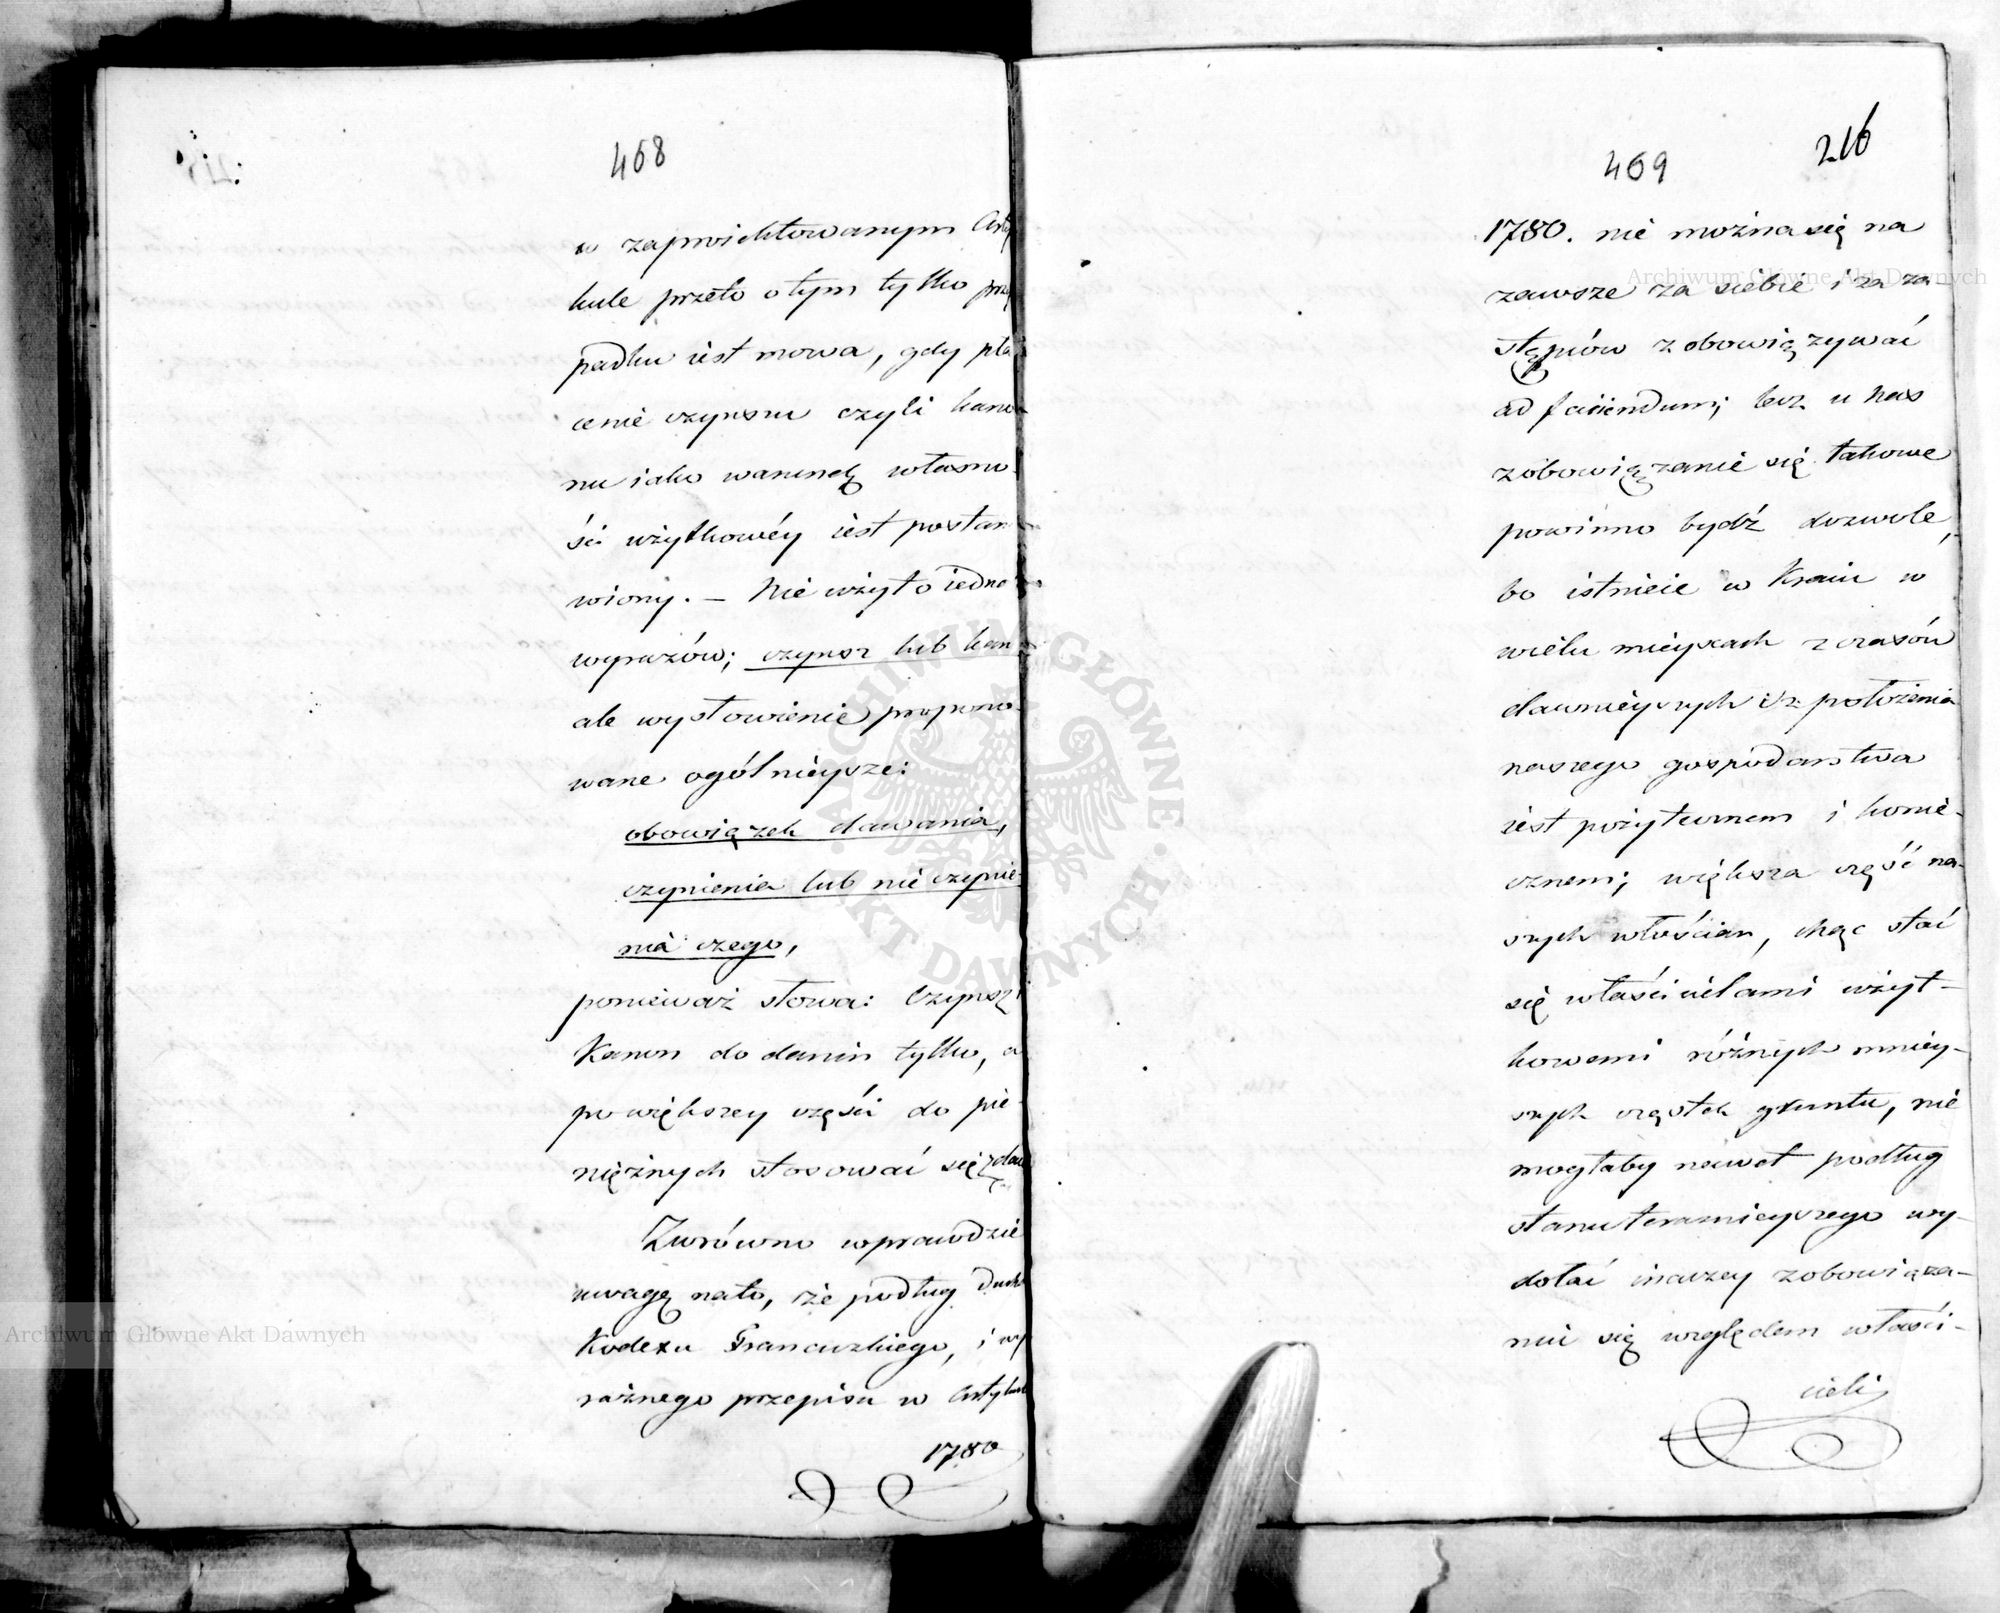 468
w zaproiektowanym Arty
kule przeto o tym tylko przy
padku iest mowa, gdy pła
cenie czynszu czyli kano
nu iako warunek własno
ści użytkowéy iest postan
wiony. — Nie użyto iedna
wyrazów; czynsz lub kan
ale wysłowienie propono
wane ogólnieysze:
obowiązek dawania,
czynienia lub nie czynie
nia czego,
ponieważ słowa: Czynsz i
Kanon do danin tylko, a
po większey części do pie-
niężnych stosować się zdaią
Zwrówno wprawdzie
uwagę nato, że podług Ducha
Kodexu Francuzkiego, i wy
raźnego przepisu w Artykule
1780
216
469
1780. nie można się na
zawsze za siebie i za za-
stępców zobowiązywać
ad faciendum; lecz u nas
zobowiązanie się takowe
powinno bydź dozwole,
bo istnieie w Kraiu w
wielu mieyscach z czasów
dawnieyszych i z położenia
naszego gospodarstwa
iest pożytecznem i konie-
cznem; większa część na-
szych włościan, chąc stać
się właścicielami użyt-
kowemi różnych mniey-
szych cząstek gruntu, nie
mogłaby nawet podług
stanu teraznieyszego wy-
dołać inaczey zobowiąza-
niu się względem właści-
cieli
Archiwum Główne Akt Dawnych
Archiwum Główne Akt Dawnych
ARCHIWUM GŁÓWNE · AKT DAWNYCH ·